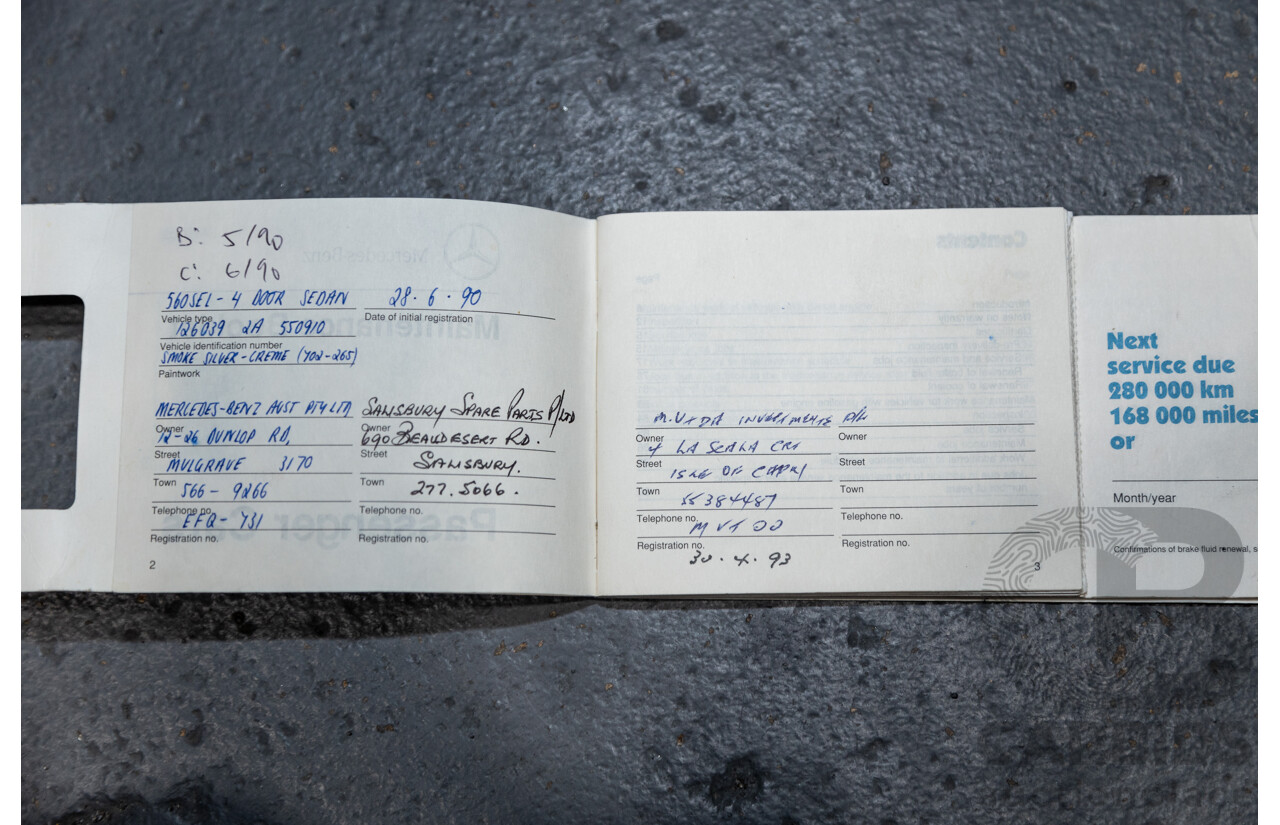 B: 5/90
C: 6/90
560SEL - 4 DOOR SEDAN
Vehicle type
28 · 6 · 90
Date of initial registration
126039 2A 550910
Vehicle identification number
SMOKE SILVER-CREME (702-265)
Paintwork
MERCEDES-BENZ AUST PTY LTD
Owner
12-26 DUNLOP RD,
Street
MULGRAVE 3170
Town
566 - 9266
Telephone no.
EFQ - 731
Registration no.
2
SALISBURY SPARE PARTS P/LTD
Owner
690 BEAUDESERT RD.
Street
SALISBURY.
Town
277.5066.
Telephone no.
Registration no.
Owner
4 LA SCALA CRT
Street
ISLE OF CAPRI
Town
55384487
Telephone no.
Registration no.
30 · 4 · 93
Owner
Street
Town
Telephone no.
Registration no.
3
Next
service due
280 000 km
168 000 miles
or
Month/year
Confirmations of brake fluid renewal, s